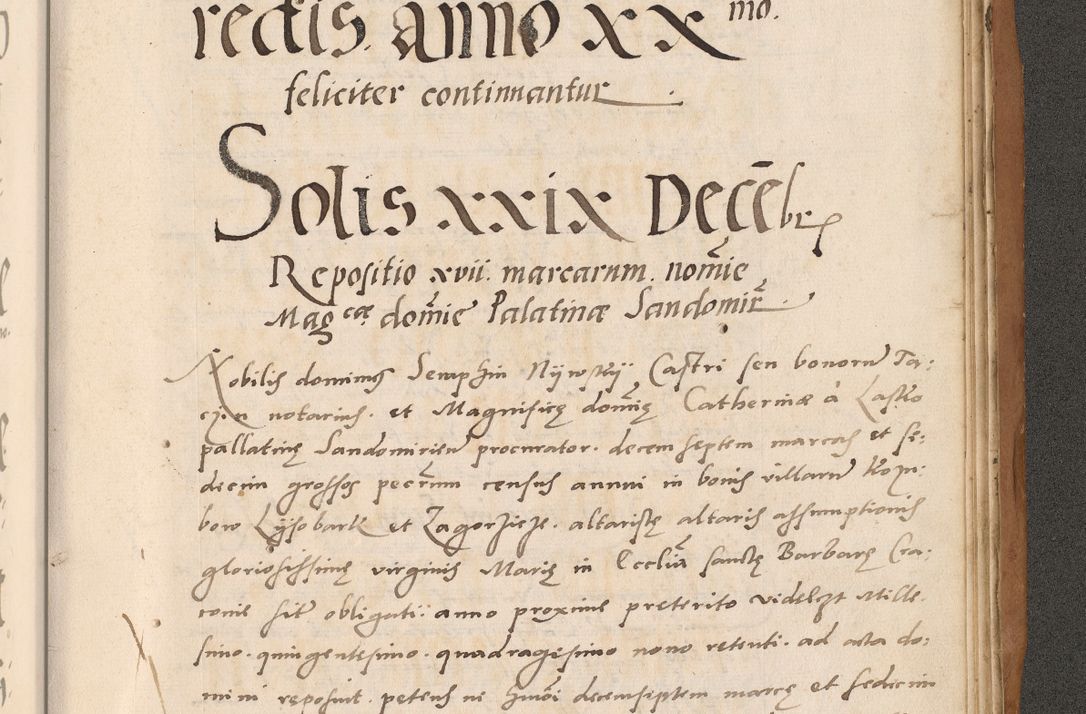 rectis. anno xx mo.
feliciter continuantur
Solis xxix Decēbr
Repositio xvii marcarum. nomīe
Magcæ domīe Palatinæ Sandomir
Nobilis dominus Seraphin Castri seu bonorum Tar:
czyn notarius. et Magnificę domīę Catherinæ à Lasko
pallatinę Sandomirien procurator. decem septem marcas et se:
decim grossos pecūm census annui in bonis villarum
bow Lyssobark et altaristę altaris assumptionis
gloriosissimę virginis Marię in Ecclia sanctę Barbarę Cra:
couie sit obligati: anno proxime preterito videlzt Mille.
simo. quingentesimo. quadragesimo nono retenti. ad acta do:
mini reposuit. petens decemseptem marcę et sedecim